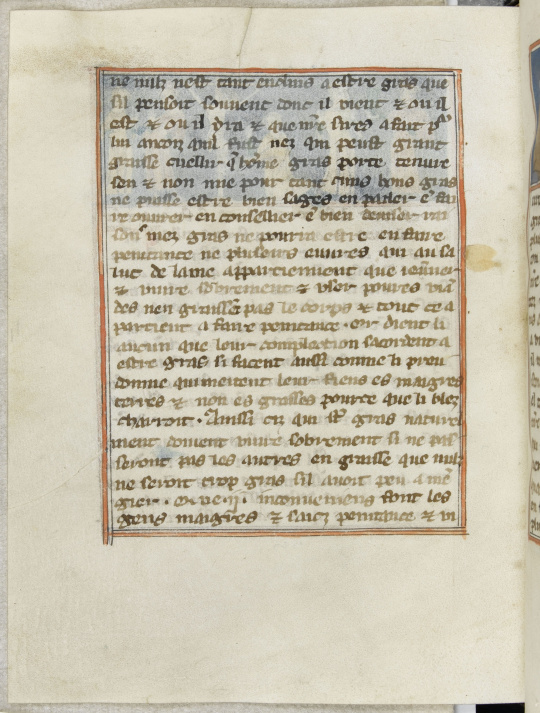 ne nulz nest tant enclins a estre gras que
sil pensoit souvent dont il vient & ou il
est & ou il yra & que nr̄e sires a fait pͬ
lui ancois quil fust nez qui peust grant
graisse cueillir q̄ hōme gras porte tenure
sen & non mie pour tant bons gras
ne puisse estre bien sages en parler & fai
re ouurer en conseillier & bien
son mez gras ne pourra estre en faire
penitance ne pluseurs euures qui au sa
lut de lame appartiennent que ieuner
& viure sobrement & vser poures viā
des nen graissēt pas le corps & tout ce a
partient a faire penitance. or dient li
aucun que leur complection sacordent a
estre gras si facent aussi comme li preu
domme qui metent leur fiens es maigres
terres & non es grasses pource que li blez
charroit. Aussi cil qui sͭ gras naturel
ment doiuent viure sobrement si ne pas
seront pas les autres en graisse que nulz
ne seront trop gras sil auoit peu a mē
gier. inconueniens font les
gens maigres & faire penitance & vi